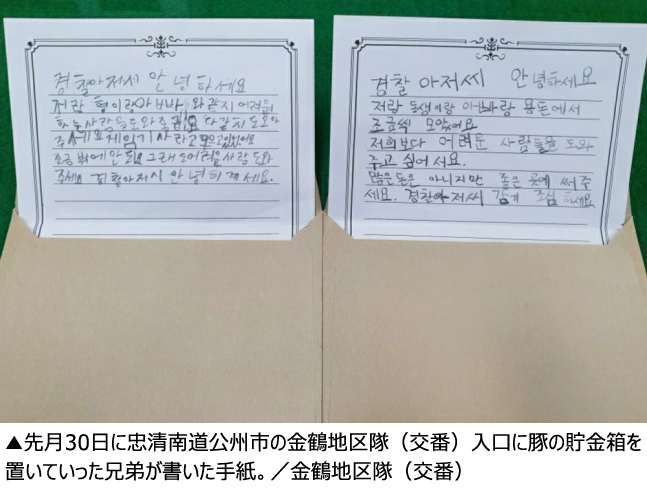 경찰아저씨 안녕하세요
저랑 형이랑아빠와 같이 어려워
하는사람들을도와
조금밖에안 그래도어려운사람도와
주세요 경찰아저시 안녕히계세요.
경찰 아저씨 안녕하세요
저랑 동생이랑 아빠랑 용돈에서
조금씩 모았어요
저희보다 어려운 사람들을 도와
주고 싶어서요.
많은돈은 아니지만 좋은 곳에 써주
세요. 경찰아저씨 감기 조심하세요
▲先月30日に忠清南道公州市の金鶴地区隊（交番）入口に豚の貯金箱を
置いていった兄弟が書いた手紙。／金鶴地区隊（交番）